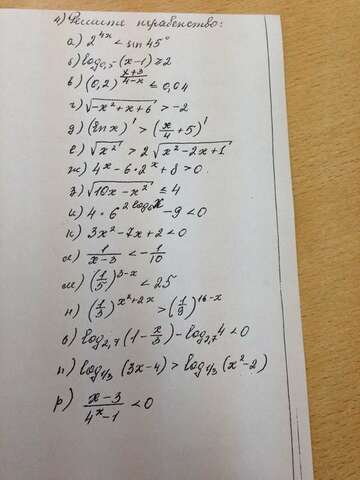 4) Решите неравенство:
а) 2^{4x} < sin 45°
б) log_{0,5} (x-1) ≥ 2
в) (0,2)^{\frac{x+3}{4-x}} ≤ 0,04
г) √(-x²+x+6) > -2
д) (ln x)' > (\frac{x}{4} + 5)'
е) √(x²) > 2 √(x²-2x+1)
ж) 4^x - 6·2^x + 8 > 0
з) √(10x-x²) ≤ 4
и) 4·6^{2 log_6 x} - 9 < 0
к) 3x² - 7x + 2 < 0
л) \frac{1}{x-3} < -\frac{1}{10}
м) (\frac{1}{5})^{3-x} < 25
н) (\frac{1}{3})^{x²+2x} > (\frac{1}{9})^{16-x}
о) log_{2,7} (1-\frac{x}{3}) - log_{2,7} 4 < 0
п) log_{1/3} (3x-4) > log_{1/3} (x²-2)
р) \frac{x-3}{4^x-1} < 0